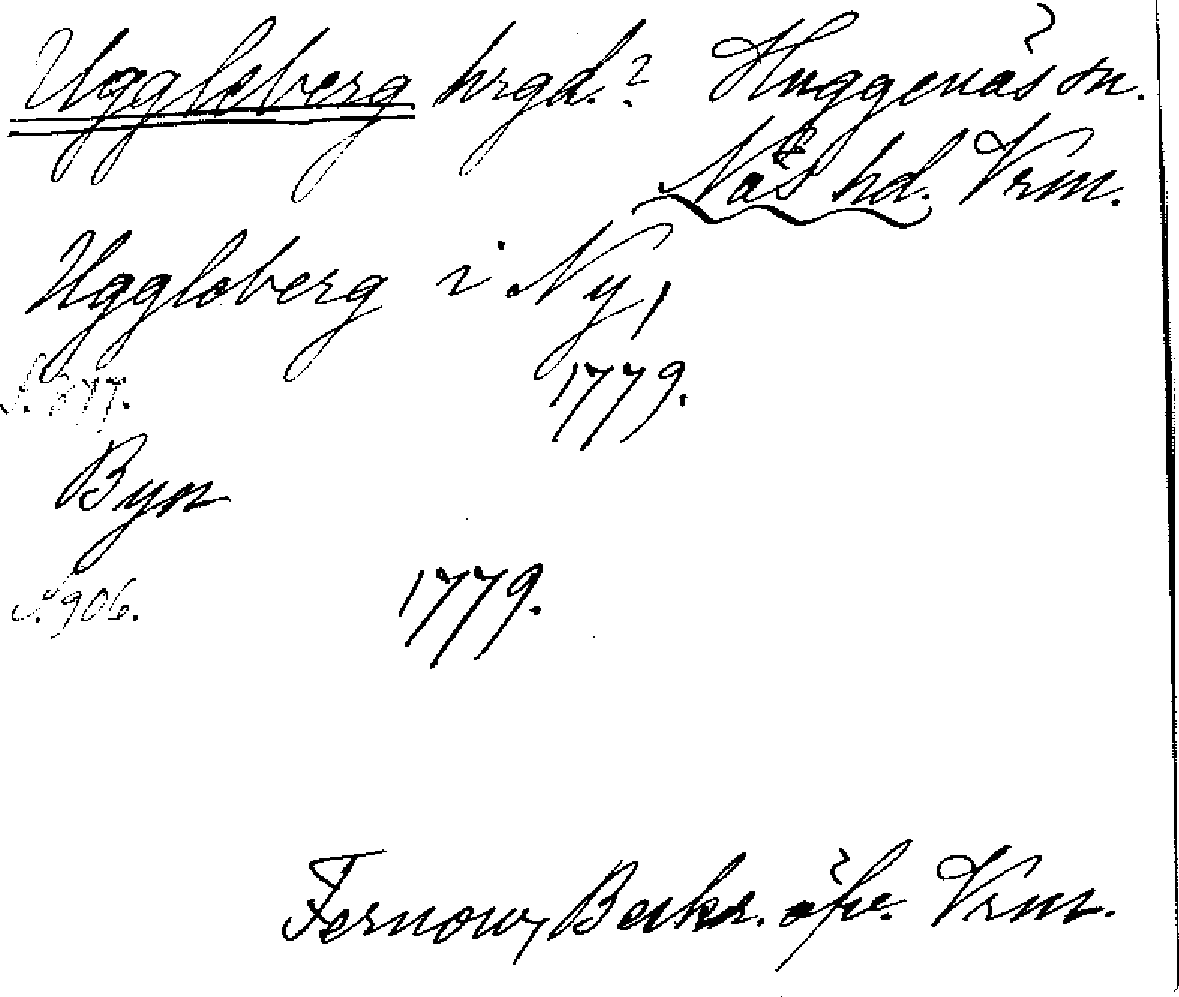 Uggleberg hrgd.? Huggenäs sn.
Näs hd. Vrm.
Uggleberg i Ny,
S. 377. 1779.
Byn
S. 906. 1779.
Fernow, Beskr. öfv. Vrm.